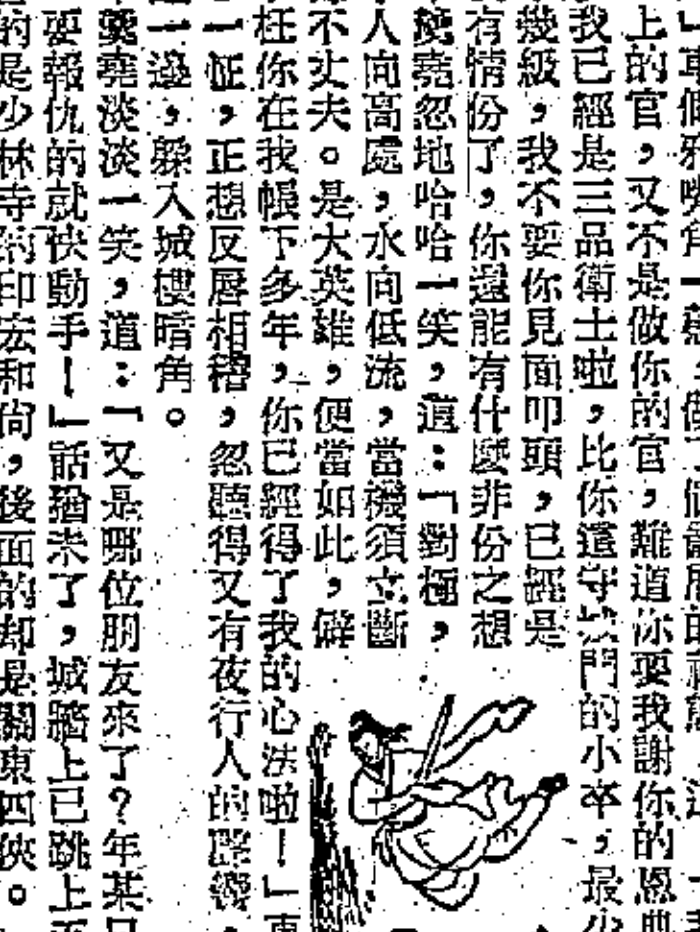 上的官，又不是做你的官，難道你要我謝你的恩典
我已經是三品衛士啦，比你還守城門的小卒，最少
幾級，我不要你見面叩頭，已經是
有情份了，你還能有什麼非份之想
羹堯忽地哈哈一笑，道：「對極，
人向高處，水向低流，當機須立斷
不丈夫。是大英雄，便當如此，僻
枉你在我帳下多年，你已經得了我的心法啦！」
一怔，正想反唇相稽，忽聽得又有夜行人的聲
一邊，躲入城樓暗角。
羹堯淡淡一笑，道：「又是哪位朋友來了？年某
要報仇的就快動手！」話猶未了，城牆上已跳上
的是少林寺的印宏和尚，後面的却是關東四俠。